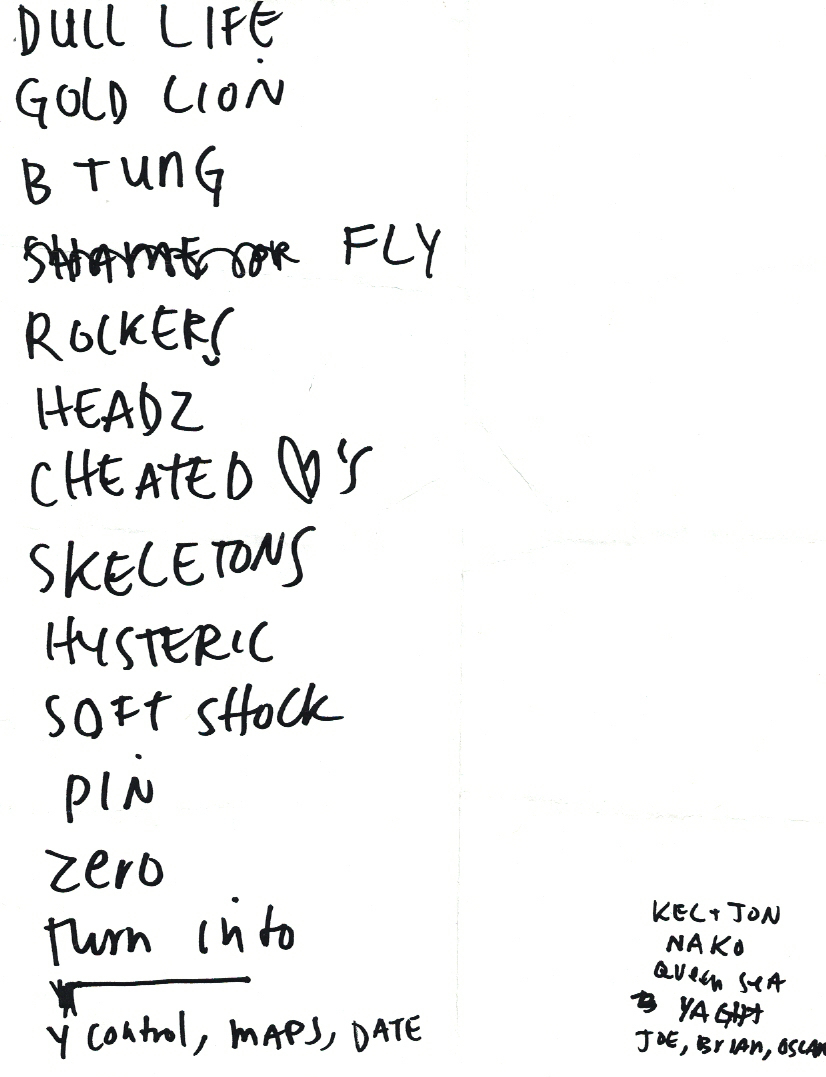 DULL LIFE
GOLD LION
B TUNG
SHAME FLY
ROCKERS
HEADZ
CHEATED ♡'S
SKELETONS
HYSTERIC
SOFT SHOCK
PIN
zero
turn into
Y control, MAPS, DATE
KEL + JON
NAKO
QUeen SeA
YAGHT
JOE, BrIAn, OSCAR